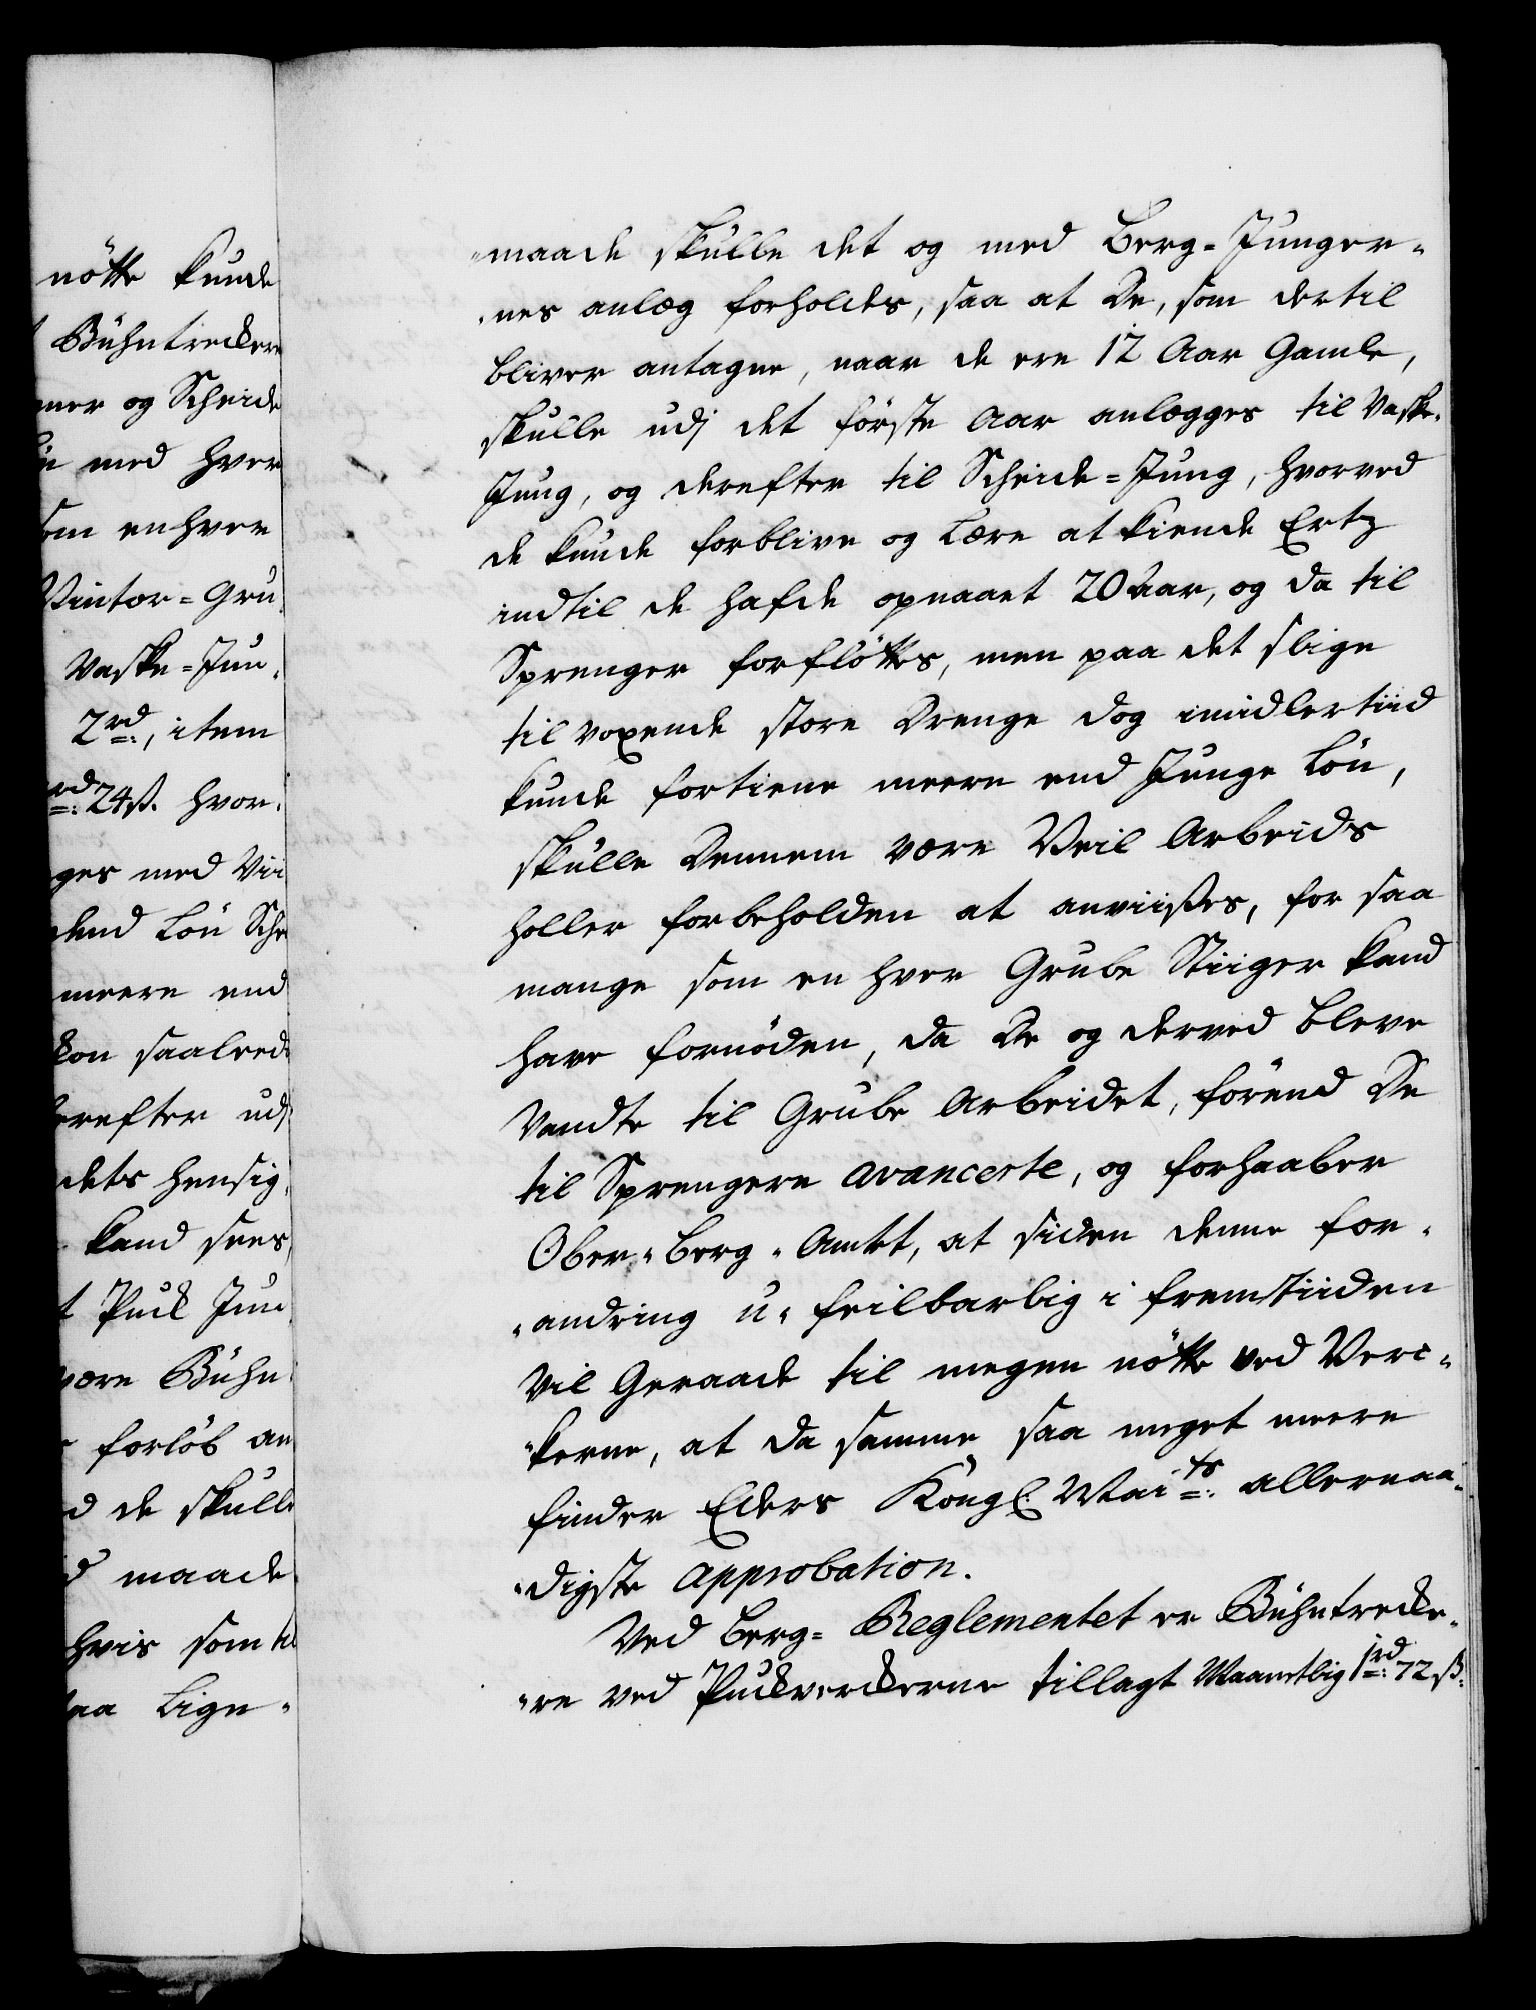 nötte kunde
Bühntreckere
mer og Scheide
med hver
som enhver
Vinter=Gru
Vaske=Jun
2rd, item
rd 24ß. hvor
ges med Vii
dend Lön Sche
meere end
kon saaleed
erefter udj
dets hensig
kand sees,
t Puck Jun
være Bühn
forlöb an
d de skulle
maade
hvis som til
paa Lign-
-maade skulle det og med Berg-Junger-
-nes anlæg forholdes, saa at De, som dertil
bliver antagne, naar de ere 12 Aar Gamle,
skulle udj det förste Aar anlægges til Vaske-
Jung, og derefter til Scheide=Jung, hvorved
de kunde forblive og Lære at kiende Ertz
indtil de hafde opnaaet 20 Aar, og da til
Sprenger forflöttes, men paa det slige
til voxende store Drenge dog imidlertiid
kunde fortiene meere end Junge Lön,
skulle Dennem være Veil Arbeids
holler forbeholden at anviißes, for saa
mange som en hver Grube Stiiger kand
have fornöden, da De og derved bleve
Vandte til Grube Arbeidet, förend De
til Sprengere avancerte, og forhaaber
Ober-Berg-Amtet, at siden denne for-
-andring u-feilbarlig i fremstiiden
Vil Geraade til megen nötte ved Verc-
-kerne, at da samme saa meget meere
finder Eders Kongl: Maits allernaa-
-digste approbation.
Ved Berg=Reglementet er Bühntrecke-
-re ved Puckverckerne tillagt Maanetlig 1rd 72ß: